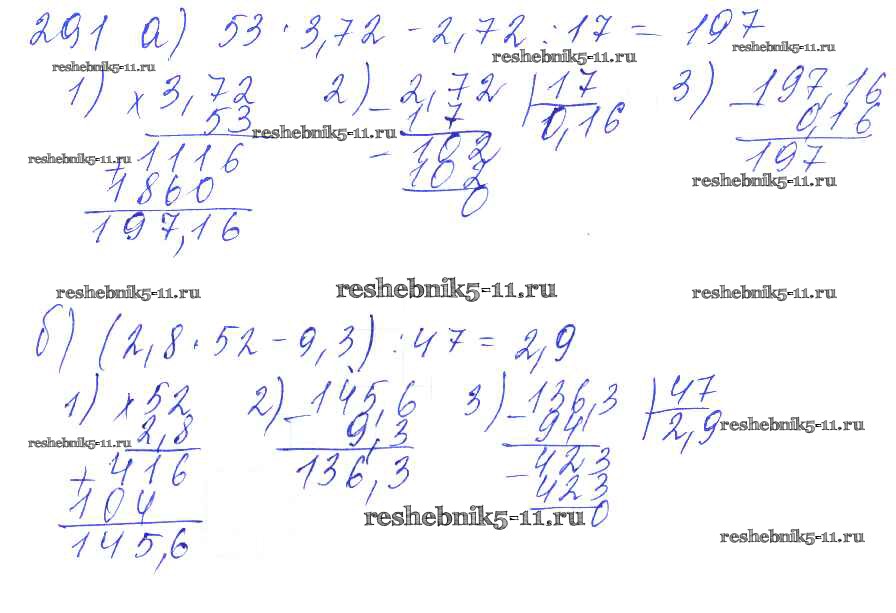 291 а) 53 · 3,72 - 2,72 : 17 = 197
reshebnik5-11.ru reshebnik5-11.ru reshebnik5-11.ru
1) × 3,72 2) - 2,72 | 17 3) - 197,16
53 17 0,16 0,16
reshebnik5-11.ru
reshebnik5-11.ru + 1116 - 102 197
1860 102 reshebnik5-11.ru
197,16 0
reshebnik5-11.ru reshebnik5-11.ru reshebnik5-11.ru
б) (2,8 · 52 - 9,3) : 47 = 2,9
1) × 52 2) - 145,6 3) - 136,3 | 47
2,8 9,3 94 2,9 reshebnik5-11.ru
reshebnik5-11.ru
+ 416 136,3 - 423
104 423
145,6 reshebnik5-11.ru 0
reshebnik5-11.ru